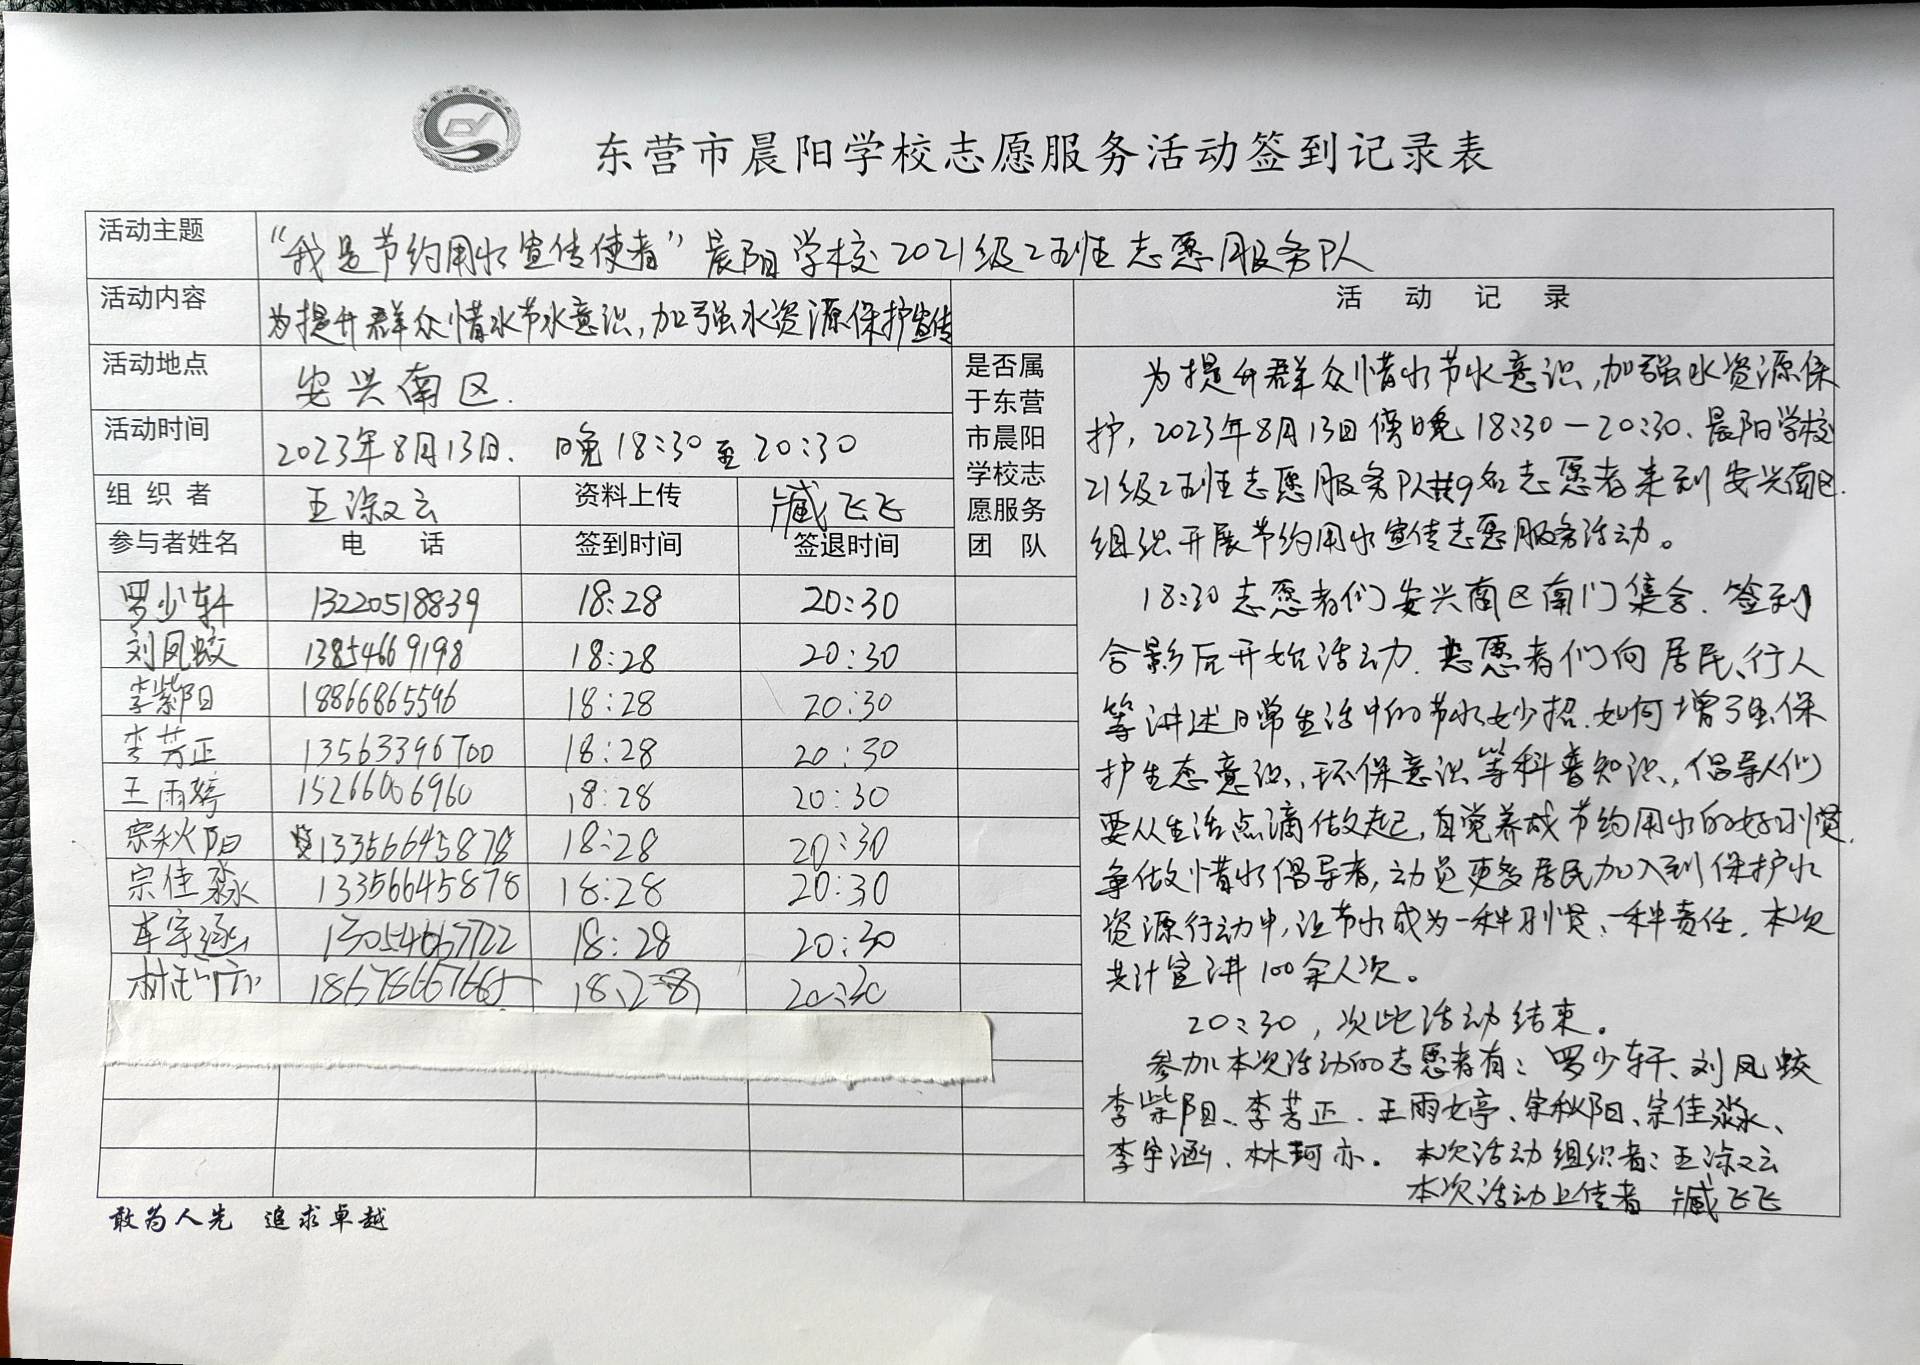 东营市晨阳学校志愿服务活动签到记录表
活动主题 “我是节约用水宣传使者”晨阳学校2021级25班志愿服务队
活动内容 为提升群众惜水节水意识,加强水资源保护宣传
活动地点 安兴南区.
活动时间 2023年8月13日. 晚18:30至20:30
组织者 王淙云 资料上传 臧飞飞
参与者姓名 电话 签到时间 签退时间
是否属
于东营
市晨阳
学校志
愿服务
团队
罗少轩 13220518839 18:28 20:30
刘凤蛟 13854669198 18:28 20:30
李紫阳 18866865596 18:28 20:30
李芳正 13563396700 18:28 20:30
王雨婷 15266006960 18:28 20:30
宗秋阳 13356645878 18:28 20:30
宗佳淼 13356645878 18:28 20:30
李宇涵 13054667722 18:28 20:30
18678667665 18:28 20:30
活动记录
为提升群众惜水节水意识,加强水资源保
护,2023年8月13日傍晚18:30—20:30.晨阳学校
21级25班志愿服务队共9名志愿者来到安兴南区.
组织开展节约用水宣传志愿服务活动。
18:30志愿者们安兴南区南门集合.签到
合影后开始活动.志愿者们向居民、行人
等讲述日常生活中的节水妙招.如何增强保
护生态意识、环保意识等科普知识,倡导人们
要从生活点滴做起,自觉养成节约用水的好习惯.
争做惜水倡导者,动员更多居民加入到保护水
资源行动中,让节水成为一种习惯、一种责任.本次
共计宣讲100余人次。
20:30,次此活动结束。
参加本次活动的志愿者有:罗少轩、刘凤蛟
李柴阳、李芳正.王雨婷、宗秋阳、宗佳淼、
李宇涵.林珂亦. 本次活动组织者:王淙云
本次活动上传者 臧飞飞
敢为人先 追求卓越